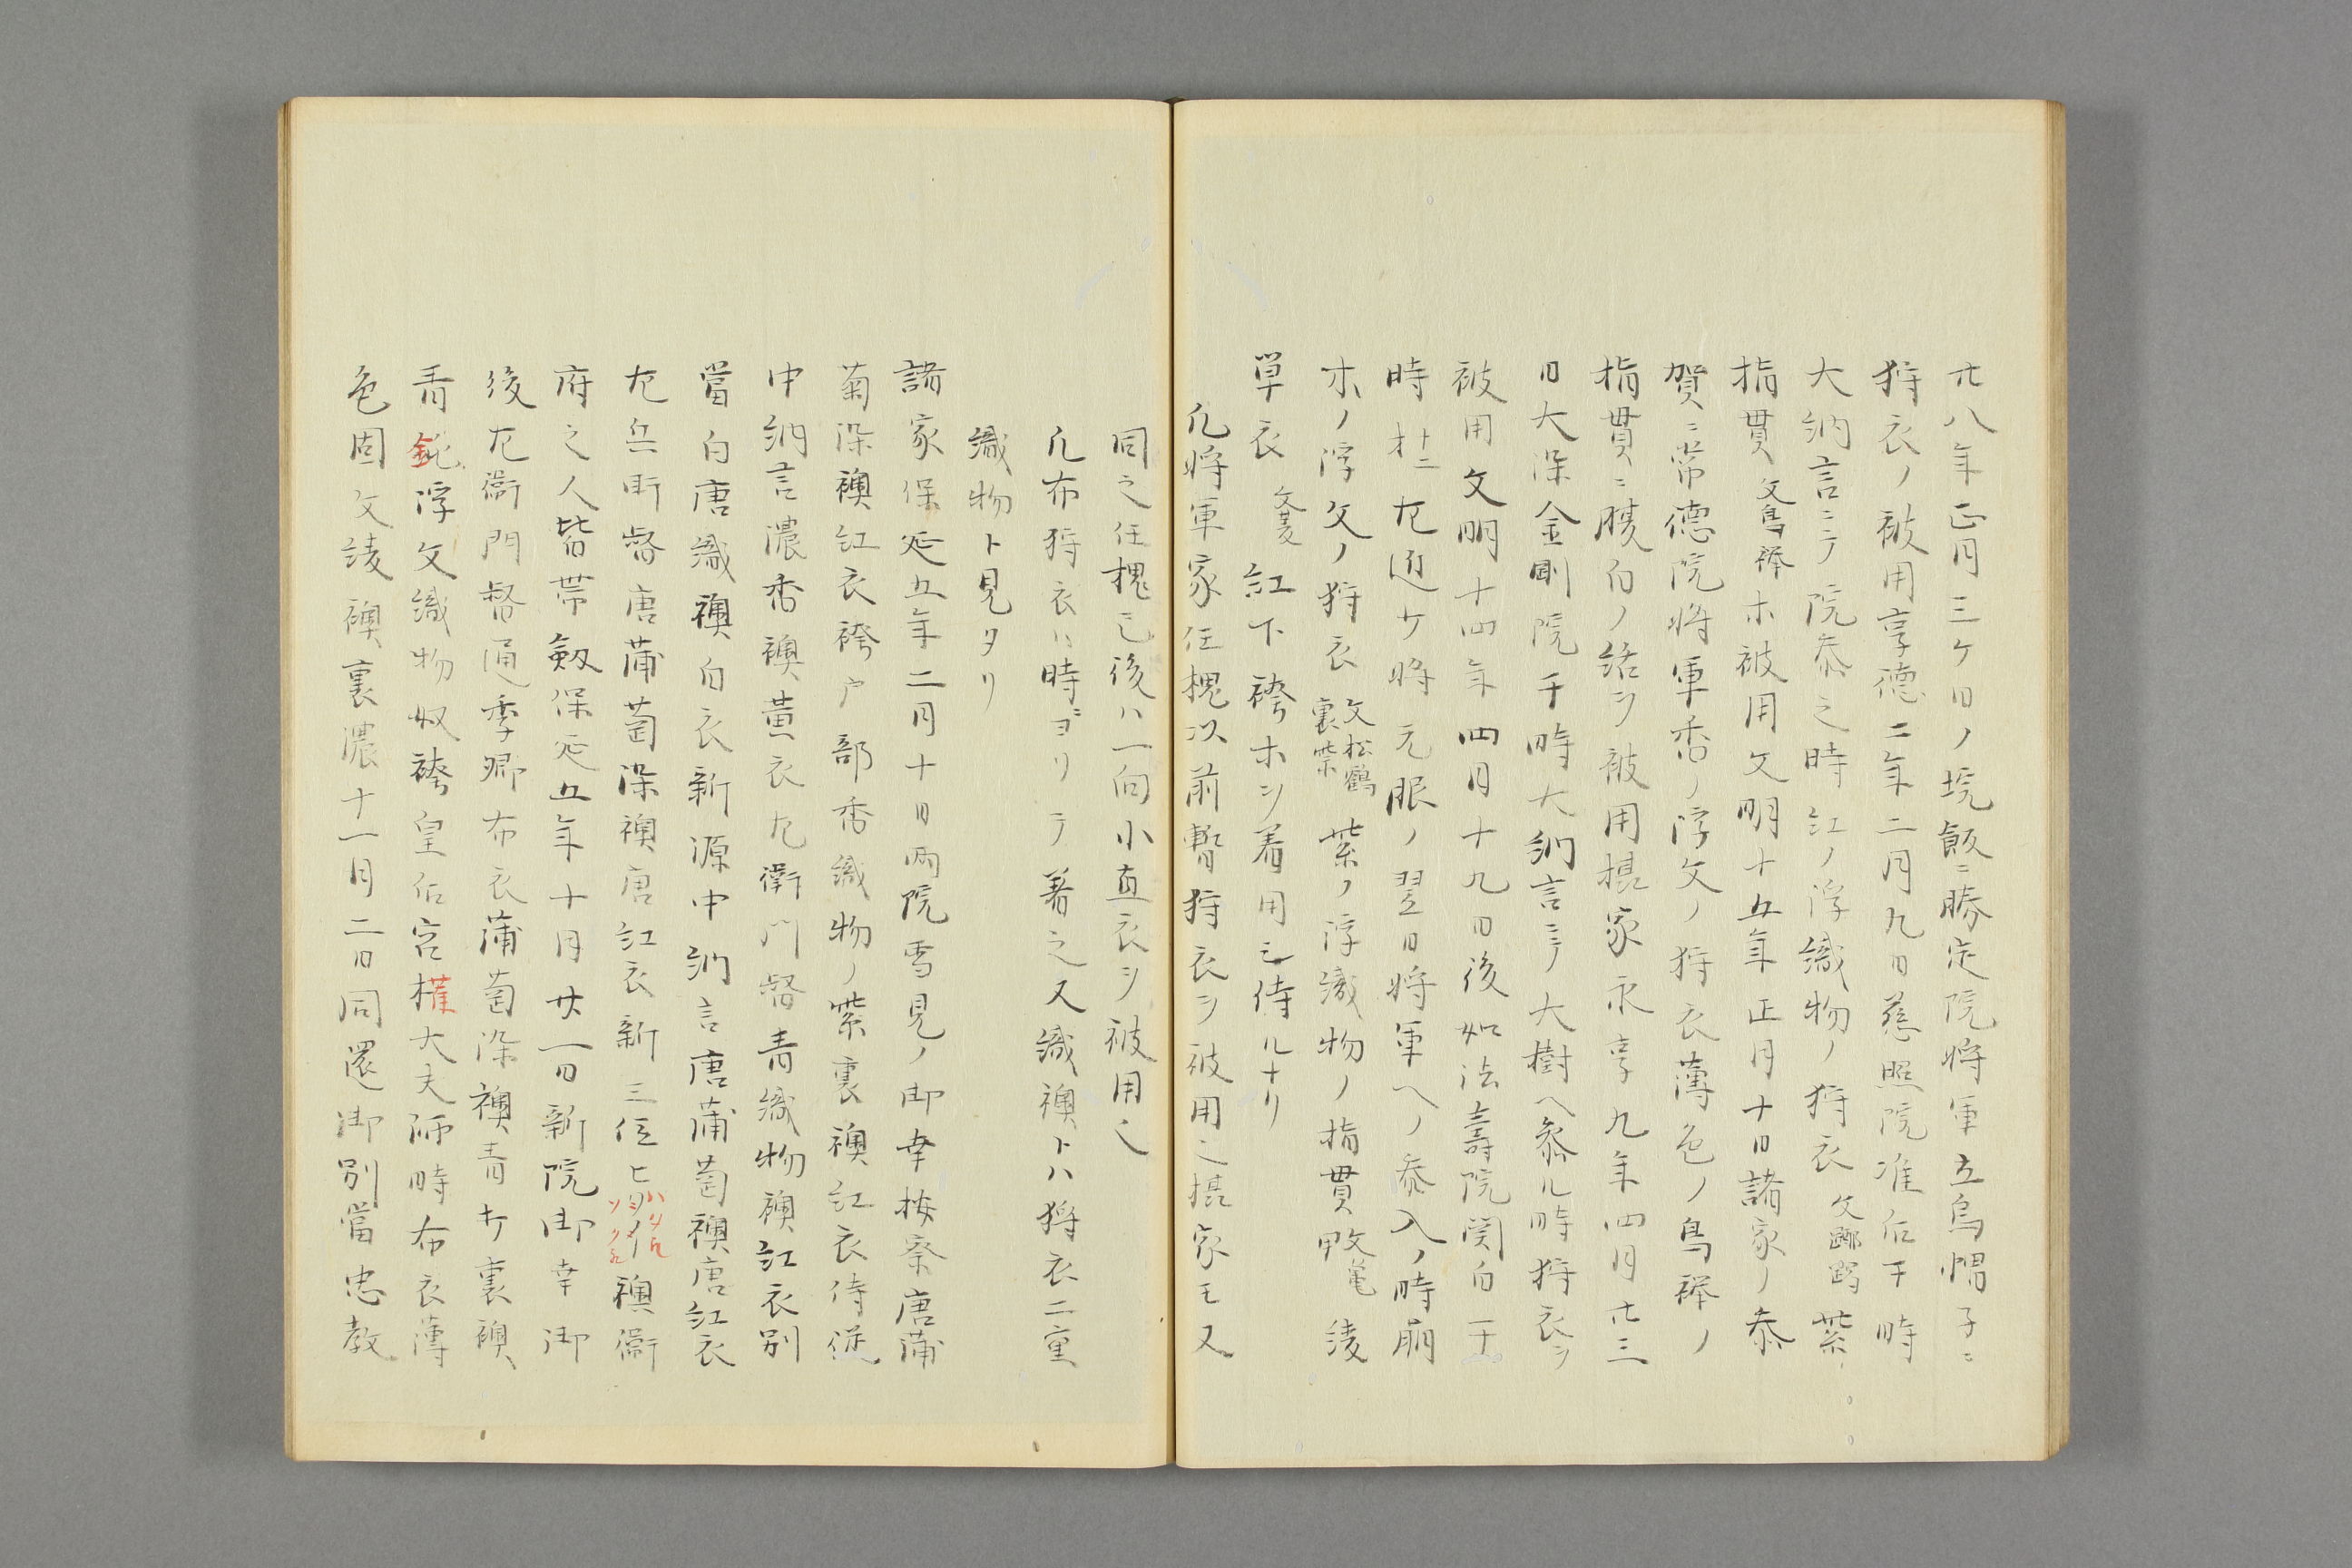 廿八年正月三ケ日ノ埦飯ニ勝定院将軍立烏帽子ニ
狩衣ノ被用享徳二年二月九日慈照院准后于時
大納言ニテ院参之時紅ノ浮織物ノ狩衣文躑躅紫ノ
指貫文鳥襷ホ被用文明十五年正月十日諸家ノ参
賀ニ常徳院将軍香ノ浮文ノ狩衣薄色ノ鳥襷ノ
指貫ニ腋白ノ結ヲ被用摂家永享九年四月廿三
日大染金剛院于時大納言ニテ大樹ヘ参ル時狩衣ヲ
被用文明十四年四月十九日後如法壽院関白于
時左近ケ将元服ノ翌日将軍ヘノ参入ノ時萠
木ノ浮文ノ狩衣文松鶴裏紫紫ノ浮織物ノ指貫文亀甲綾
単衣文菱紅下袴ホヲ着用シ侍ルナリ
凢将軍家任槐以前暫狩衣ヲ被用之摂家モ又
同之任槐已後ハ一向小直衣ヲ被用之
凢布狩衣ハ時ニヨリテ著之又織襖トハ狩衣二重
織物ト見タリ
諸家保延五年二月十日兩院雪見ノ御幸按察唐蒲
萄染襖紅衣袴戸部香織物ノ紫裏襖紅衣侍従
中納言濃香襖黄衣左衛門督青織物襖紅衣別
當白唐織襖白衣新源中納言唐蒲萄襖唐紅衣
左兵衛督唐蒲萄染襖唐紅衣新三位襖衛
府之人皆帯劔保延五年十月廿一日新院御幸御
後左衛門督通季卿布衣蒲萄染襖青キ裏襖
青鈍浮文織物奴袴皇后宮権大夫師時布衣薄
色固文綾襖裏濃十一月二日同還御別當忠教